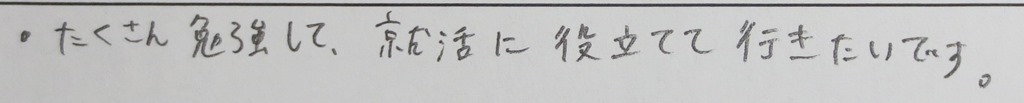 ・たくさん勉強して、就活に役立てて行きたいです。